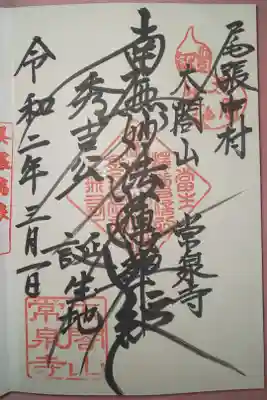 尾張中村
太閤山 常泉寺
南無妙法蓮華経
秀吉公 誕生地
令和二年三月一日
太閤山
常泉寺